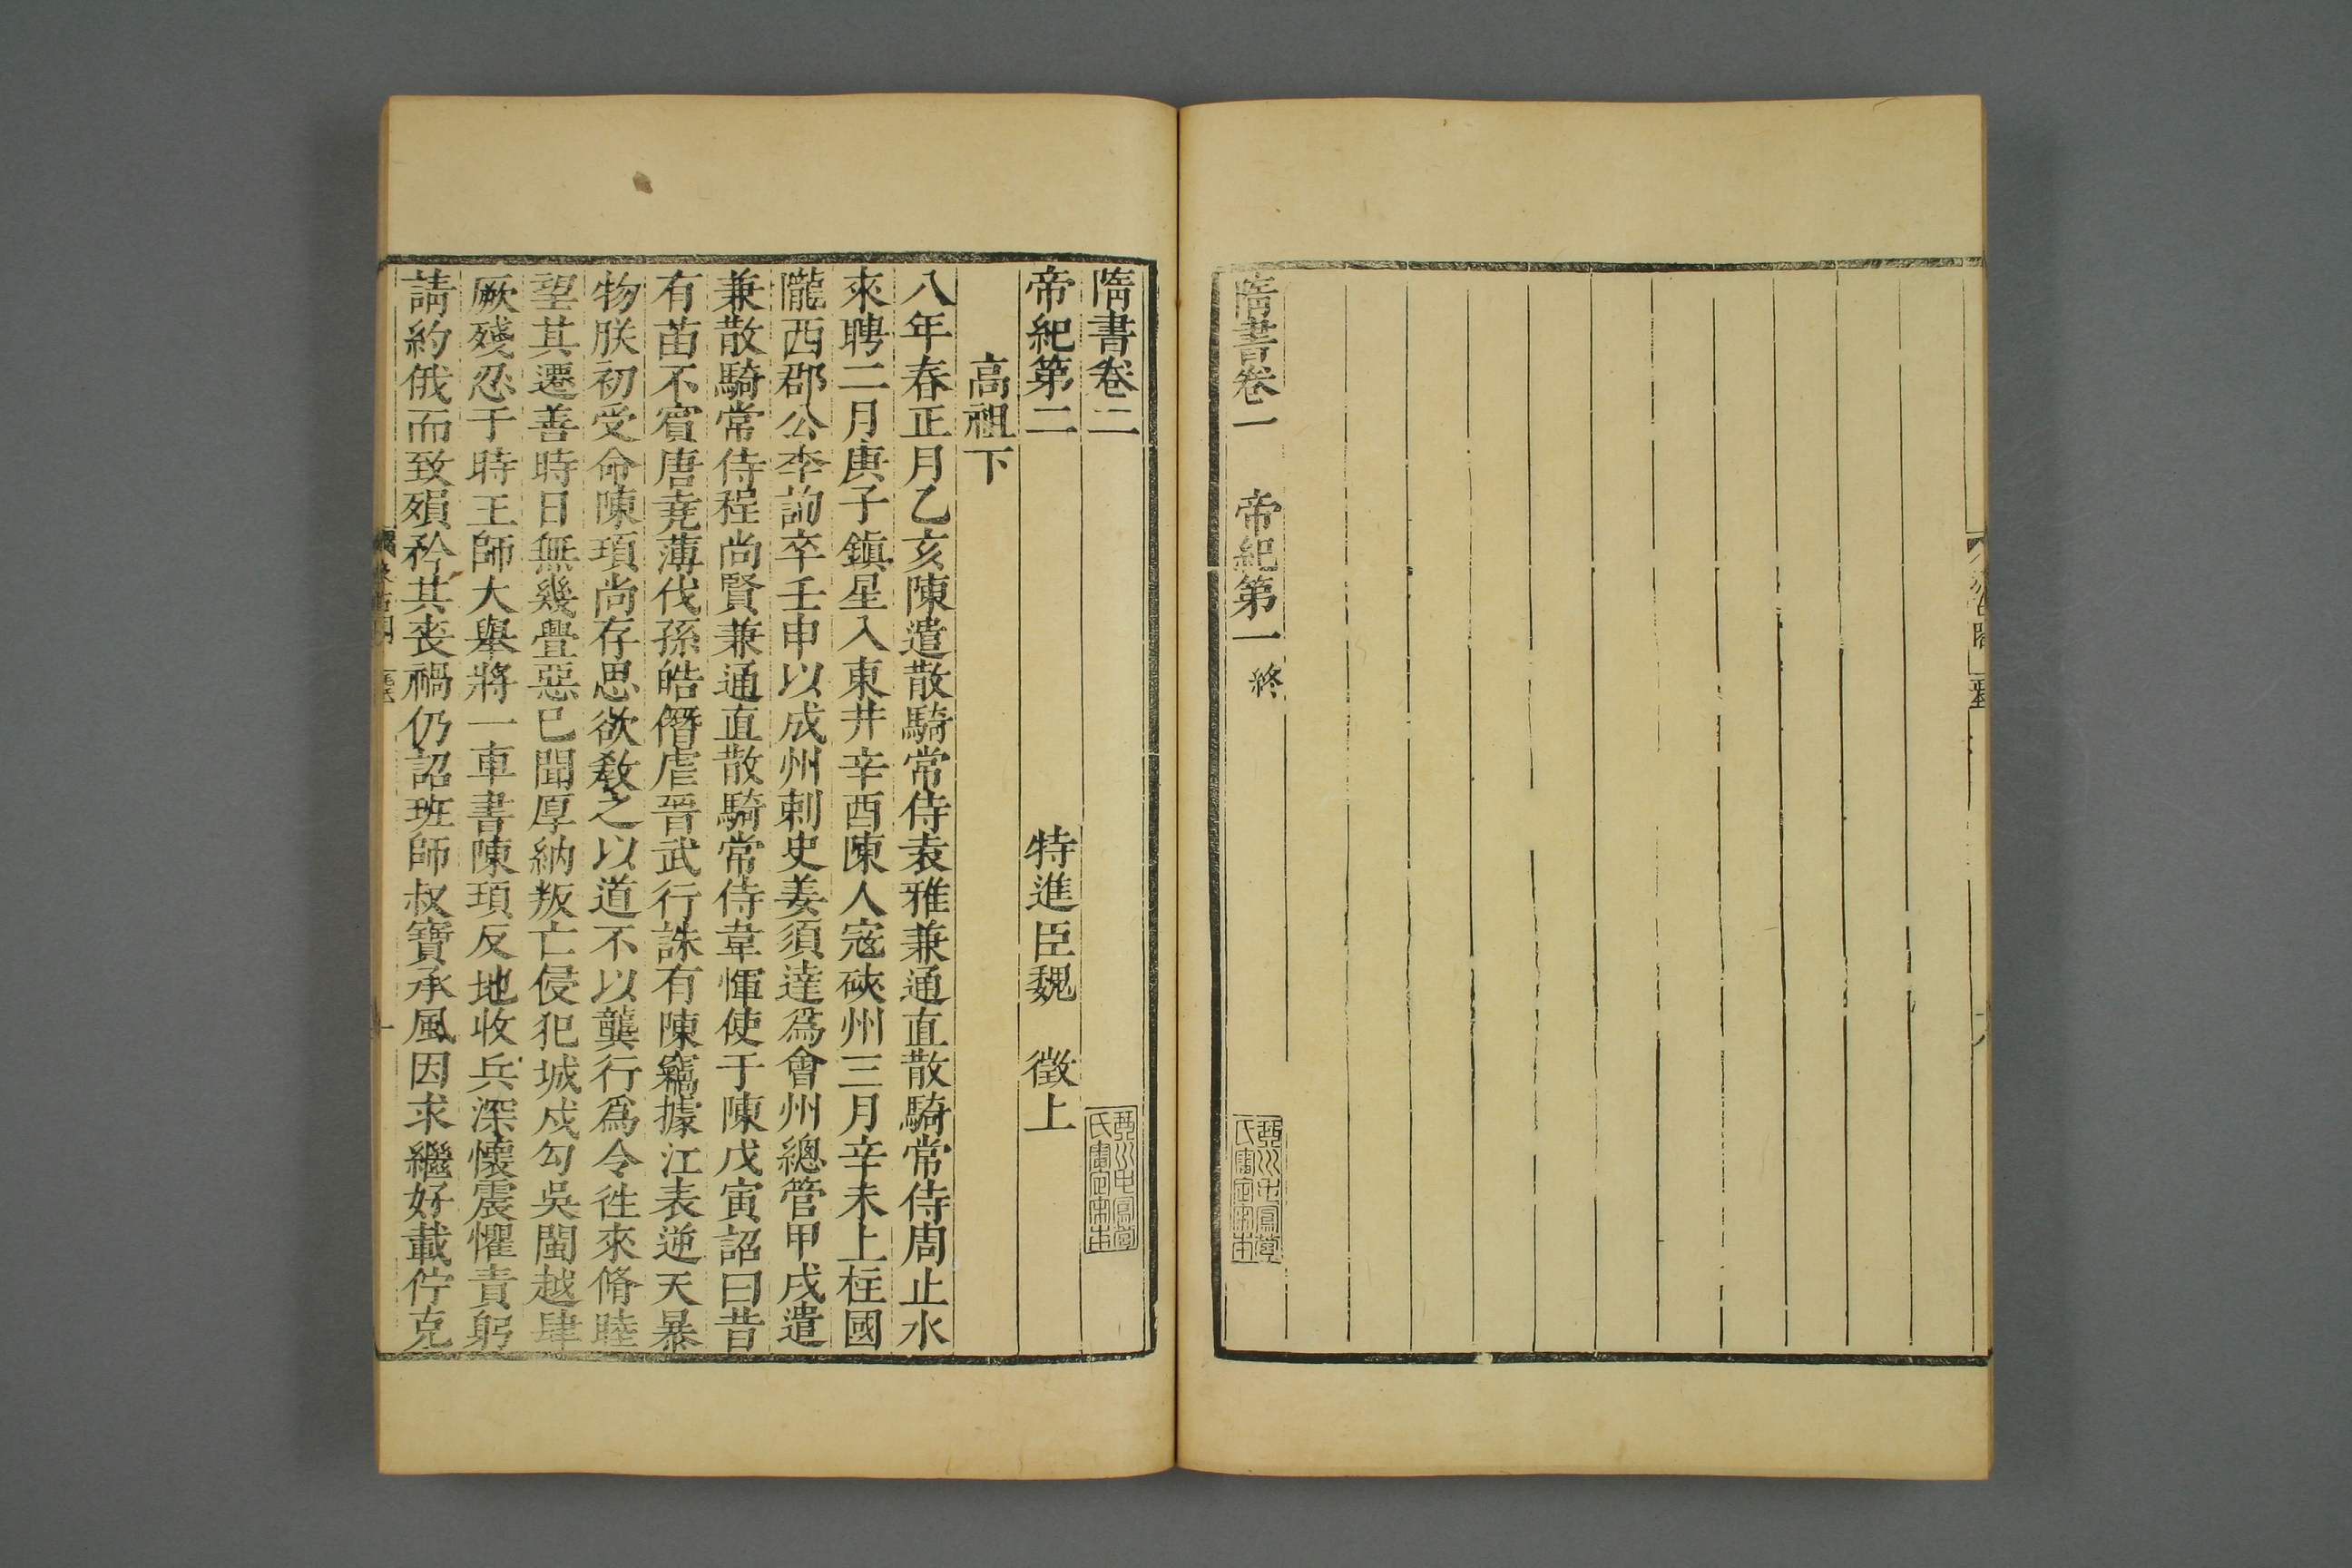 隋書卷一 帝紀第一終
隋書卷二
帝紀第二 特進臣魏 徵上
高祖下
八年春正月乙亥陳遣散騎常侍袁雅兼通直散騎常侍周止水
來聘二月庚子鎮星入東井辛酉陳人寇硤州三月辛未上柱國
隴西郡公李詢卒壬申以成州刺史姜須達爲會州總管甲戌遣
兼散騎常侍程尚賢兼通直散騎常侍韋惲使于陳戊寅詔曰昔
有苗不賓唐堯薄伐孫皓僭虐晉武行誅有陳竊據江表逆天暴
物朕初受命陳頊尚存思欲教之以道不以龔行爲令往來脩睦
望其遷善時日無幾釁惡已聞厚納叛亡侵犯城戍勾吳閩越肆
厥殘忍于時王師大舉將一車書陳頊反地收兵深懷震懼責躬
請約俄而致殞矜其喪禍仍詔班師叔寶承風因求繼好載佇克